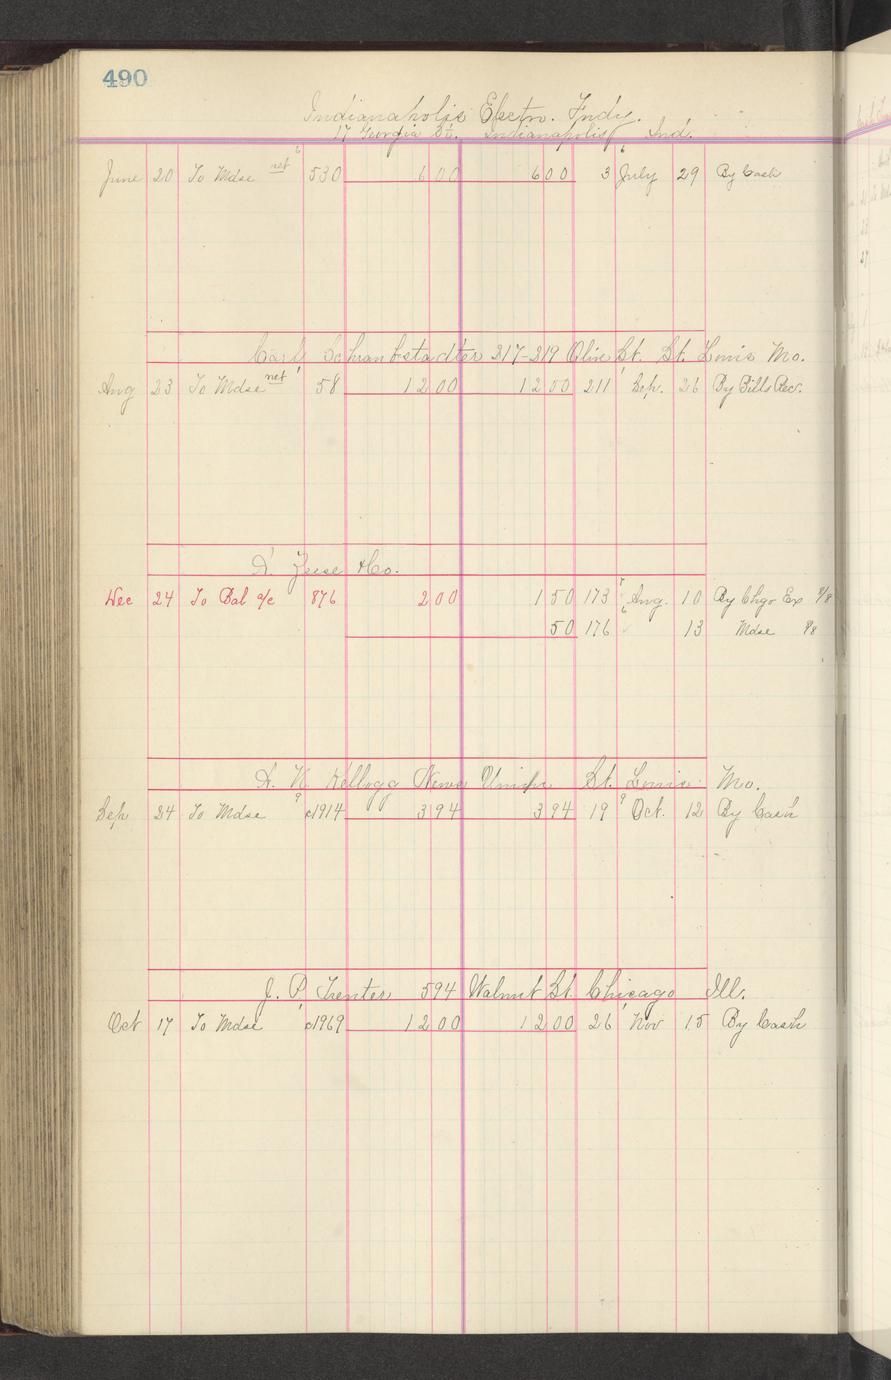 490
Indianapolis Electro. Fndy.
17 Georgia St. Indianapolis Ind.
June 20 To Mdse net 6 530 6 00 6 00 3 6 July 29 By Cash
Carl 217-219 Olive St. St. Louis Mo.
Aug 23 To Mdse net 1 58 12 00 12 00 211 1 Sep. 26 By Bills Rec.
& Co.
Dec 24 To Bal a/c 876 2 00 1 50 173 7 Aug. 10 By Chgo Ex 8/8
50 176 6 " 13 Mdse 8/8
A. N. Kellogg News Union St. Louis Mo.
Sep 24 To Mdse 9 c1914 3 94 3 94 19 9 Oct. 12 By Cash
J. P. Trenter 594 Walnut St. Chicago Ill.
Oct 17 To Mdse 1 c1969 12 00 12 00 26 1 Nov 15 By Cash